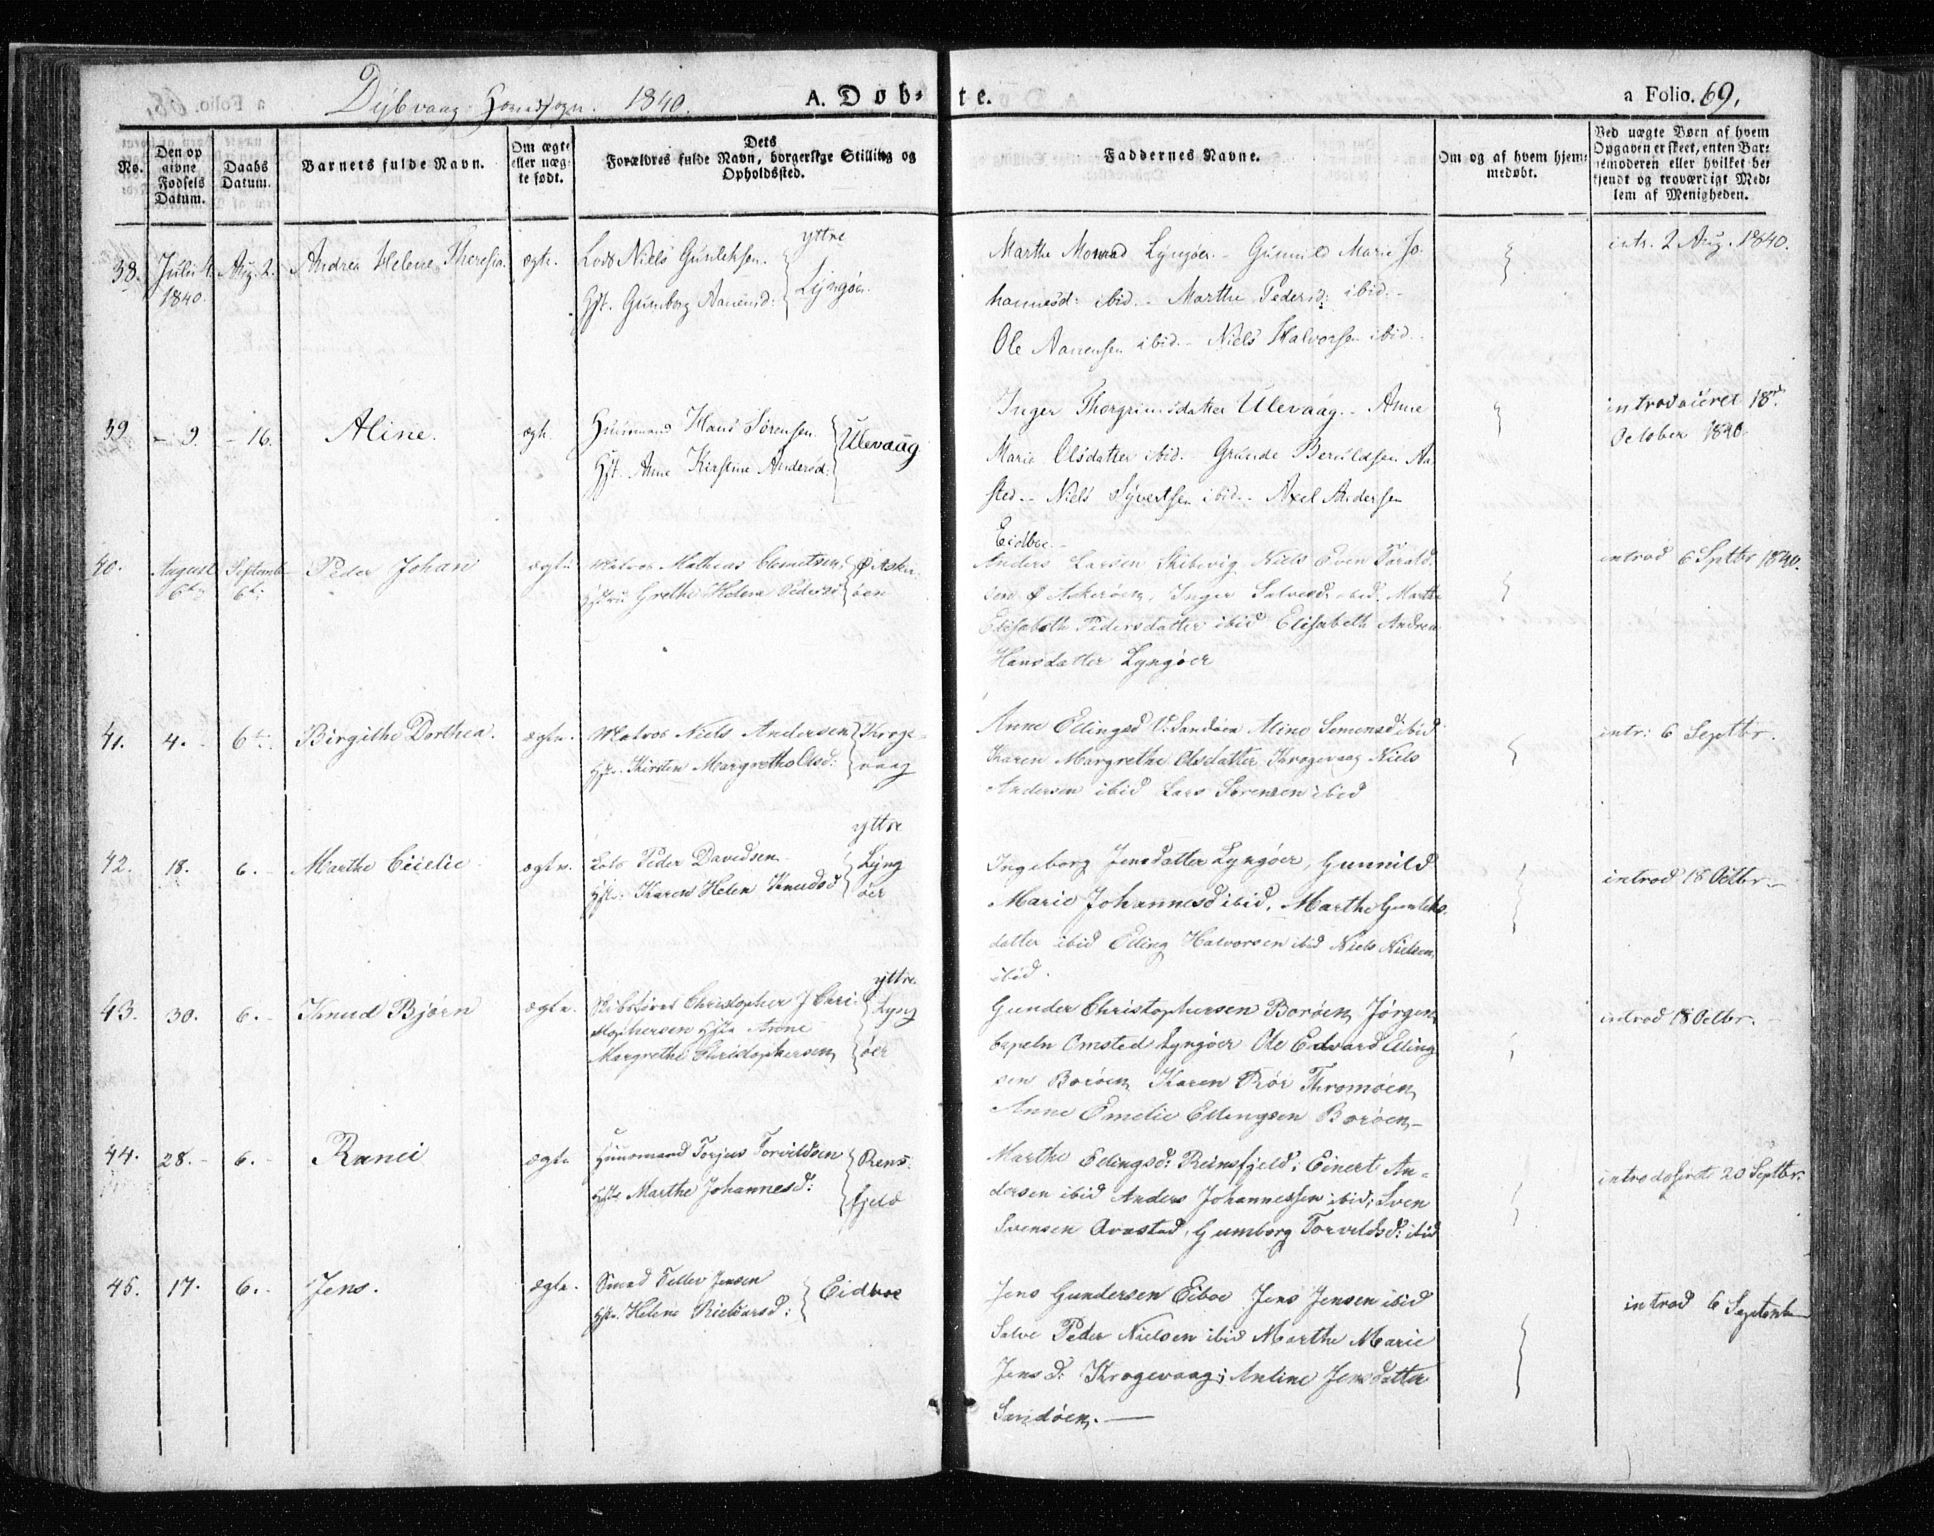 Dybvaag Hovedsogn. 1840.
A. Døb-te.
a Folio. 69.
No.
Den op givne Fødsels Datum.
Daabs Datum.
Barnets fulde Navn.
Om ægte eller uægte født.
Dets Forældres fulde Navn, borgerlige Stilling og Opholdssted.
Faddernes Navne.
Om og af hvem hjemmedøbt.
Ved uægte Børn af hvem Opgaven er skeet, enten Barnemoderen eller hvilket bekjendt og troværdigt Medlem af Menigheden.
38. Julii 4. 1840. Aug. 2. Andrea Helene Theresia. ægte.
Lods Niels Gunleksen.
Hst. Gunborg Aanensd:
yttre Lyngöer.
Marthe Monrad Lyngöer. - Gunnild Marie Jo-
hannesd: ibid. - Marthe Pedersd: ibid. -
Ole Aanensen ibid. - Niels Halvorsen ibid. -
intr. 2 Aug. 1840.
39. - 9. - 16. Aline. ægte.
Huusmand Hans Sørensen
Hst. Anne Kirstine Andersd:
Ulevaag
Inger Thorgrimsdatter Ulevaag. - Anne
Marie Olsdatter ibid. - Grunde Beruldsen Aa-
sted. - Niels Syvertsen ibid. - Axel Andersen
Eidboe. -
introduceret 18de
October 1840.
40. August 6te September 6te Peder Johan ægte
Matros Mathias Clemetsen,
Hstru Grethe Helene Pedersd
Ø Asker-
öen
Anders Larsen Skibevig, Niels Even Torald-
sen Ø Askeröen, Inger Salvesd. ibid, Marthe
Elisabeth Pedersdatter ibid Elisabeth Andrea
Hansdatter Lyngöer
introd 6 Septbr 1840.
41. 4. 6te Birgithe Dorthea. ægte.
Matros Niels Andersen
Hst. Kirsten Margrethe Olsd:
Kroge-
vaag
Anne Edingsd V: Sandöen Aline Simonsd ibid
Karen Margrethe Olsdatter Krogevaag Niels
Andersen ibid Lars Sørensen ibid
intr: 6 Septbr.
42. 18. 6. Marthe Cicelie ægte.
Lods Peder Davidsen
Hst. Karen Helen Knudsd
yttre
Lyng
öer
Ingeborg Jensdatter Lyngöer, Gunnild
Marie Johannesd ibid, Marthe Gunleks-
datter ibid Eding Halvorsen ibid Niels Nielsen
ibid.
introd 18 Octbr. -
43. 30. 6. Knud Bjørn ægte.
Skibsfører Christopher J Chri-
stophersen Hste Anne
Margrethe Christophersen
yttre
Lyng
öer
Gunder Christophersen Boröen, Jørgen
Omsted Lyngöer Ole Edvard Eding
sen Boröen, Karen Tromöen
Anne Emelie Edingsen Boröen -
introd 18 Octbr. -
44. 28. - 6. - Ranei ægte
Huusmand Torjus Torvildsen
Hste Marthe Johannesd:
Rens-
fjeld
Marthe Edingsd: Reinsfjeld; Einert An-
dersen ibid Anders Johannessen ibid; Sven
Svensen Avnstad, Gumborg Torvildsd: ibid
introducerte 20 Septbr.
45. 17. 6. - Jens. ægte.
Smed Tellev Jensen
Hst. Helene Richardsd:
Eidboe
Jens Gundersen Eiboe Jens Jensen ibid
Salve Peder Nielsen ibid Marthe Marie
Jens d: Krogevaag; Antine Jensdatter
Sandöen. -
introd 6 September